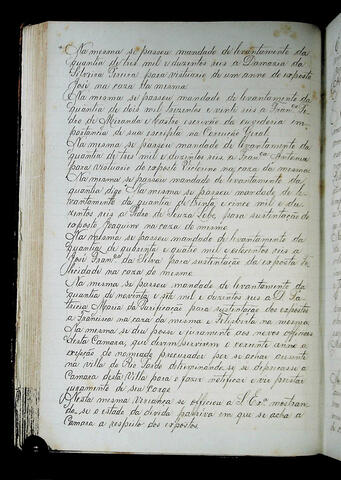 Na mesma se passou mandado de levantamento da
quantia de tres mil e duzentos reis a Damazia da
Silveira Pereira para vistuario de um anno do exposto
José na caza da mesma
Na mesma se passou mandado de levantamento da
quantia de dois mil trezentos e vinte reis a Fran.co Pe-
dro de Miranda e Castro escrivão da ouvidoria im-
portancia de sua escripta na Correição Geral.
Na mesma se passou mandado de levantamento da
quantia de tres mil e duzentos reis a Fran.ca Antonia
para vistuario do exposto Victorino na caza da mesma
Na mesma se passou mandado de levantamento da
quantia digo Na mesma se passou mandado de le-
vantamento da quantia de trinta e cinco mil e du-
zentos reis a Pedro de Souza Lobo, para sustentação do
exposto Joaquim na caza do mesmo
Na mesma se passou mandado de levantamento da
quantia de quarenta e quatro mil e oitocentos reis a
José Fran.co da Silva para sustentação da exposta Fe-
licidade na caza do mesmo
Na mesma se passou mandado de levantamento da
quantia de noventa e seis mil e duzentos reis a D. Pa-
tricia Maria da Purificação para sustentação dos expostos
a Francisca na caza da mesma e Felisberta na mesma
Na mesma se deu posse e juramento aos novos officiaes
desta Camara, que devem servirem o corrente anno a
exceção do nomeado procurador por se achar auzente
na villa do Rio Pardo determinando-se se deprecasse a
Camara desta Villa para o fazer notificar e vir prestar
juramento de seu cargo.
Nesta mesma vereança se officiou a S. Ex.a mostran-
do-se o estado da divida passiva em que se acha a
Camara a respeito dos expostos.